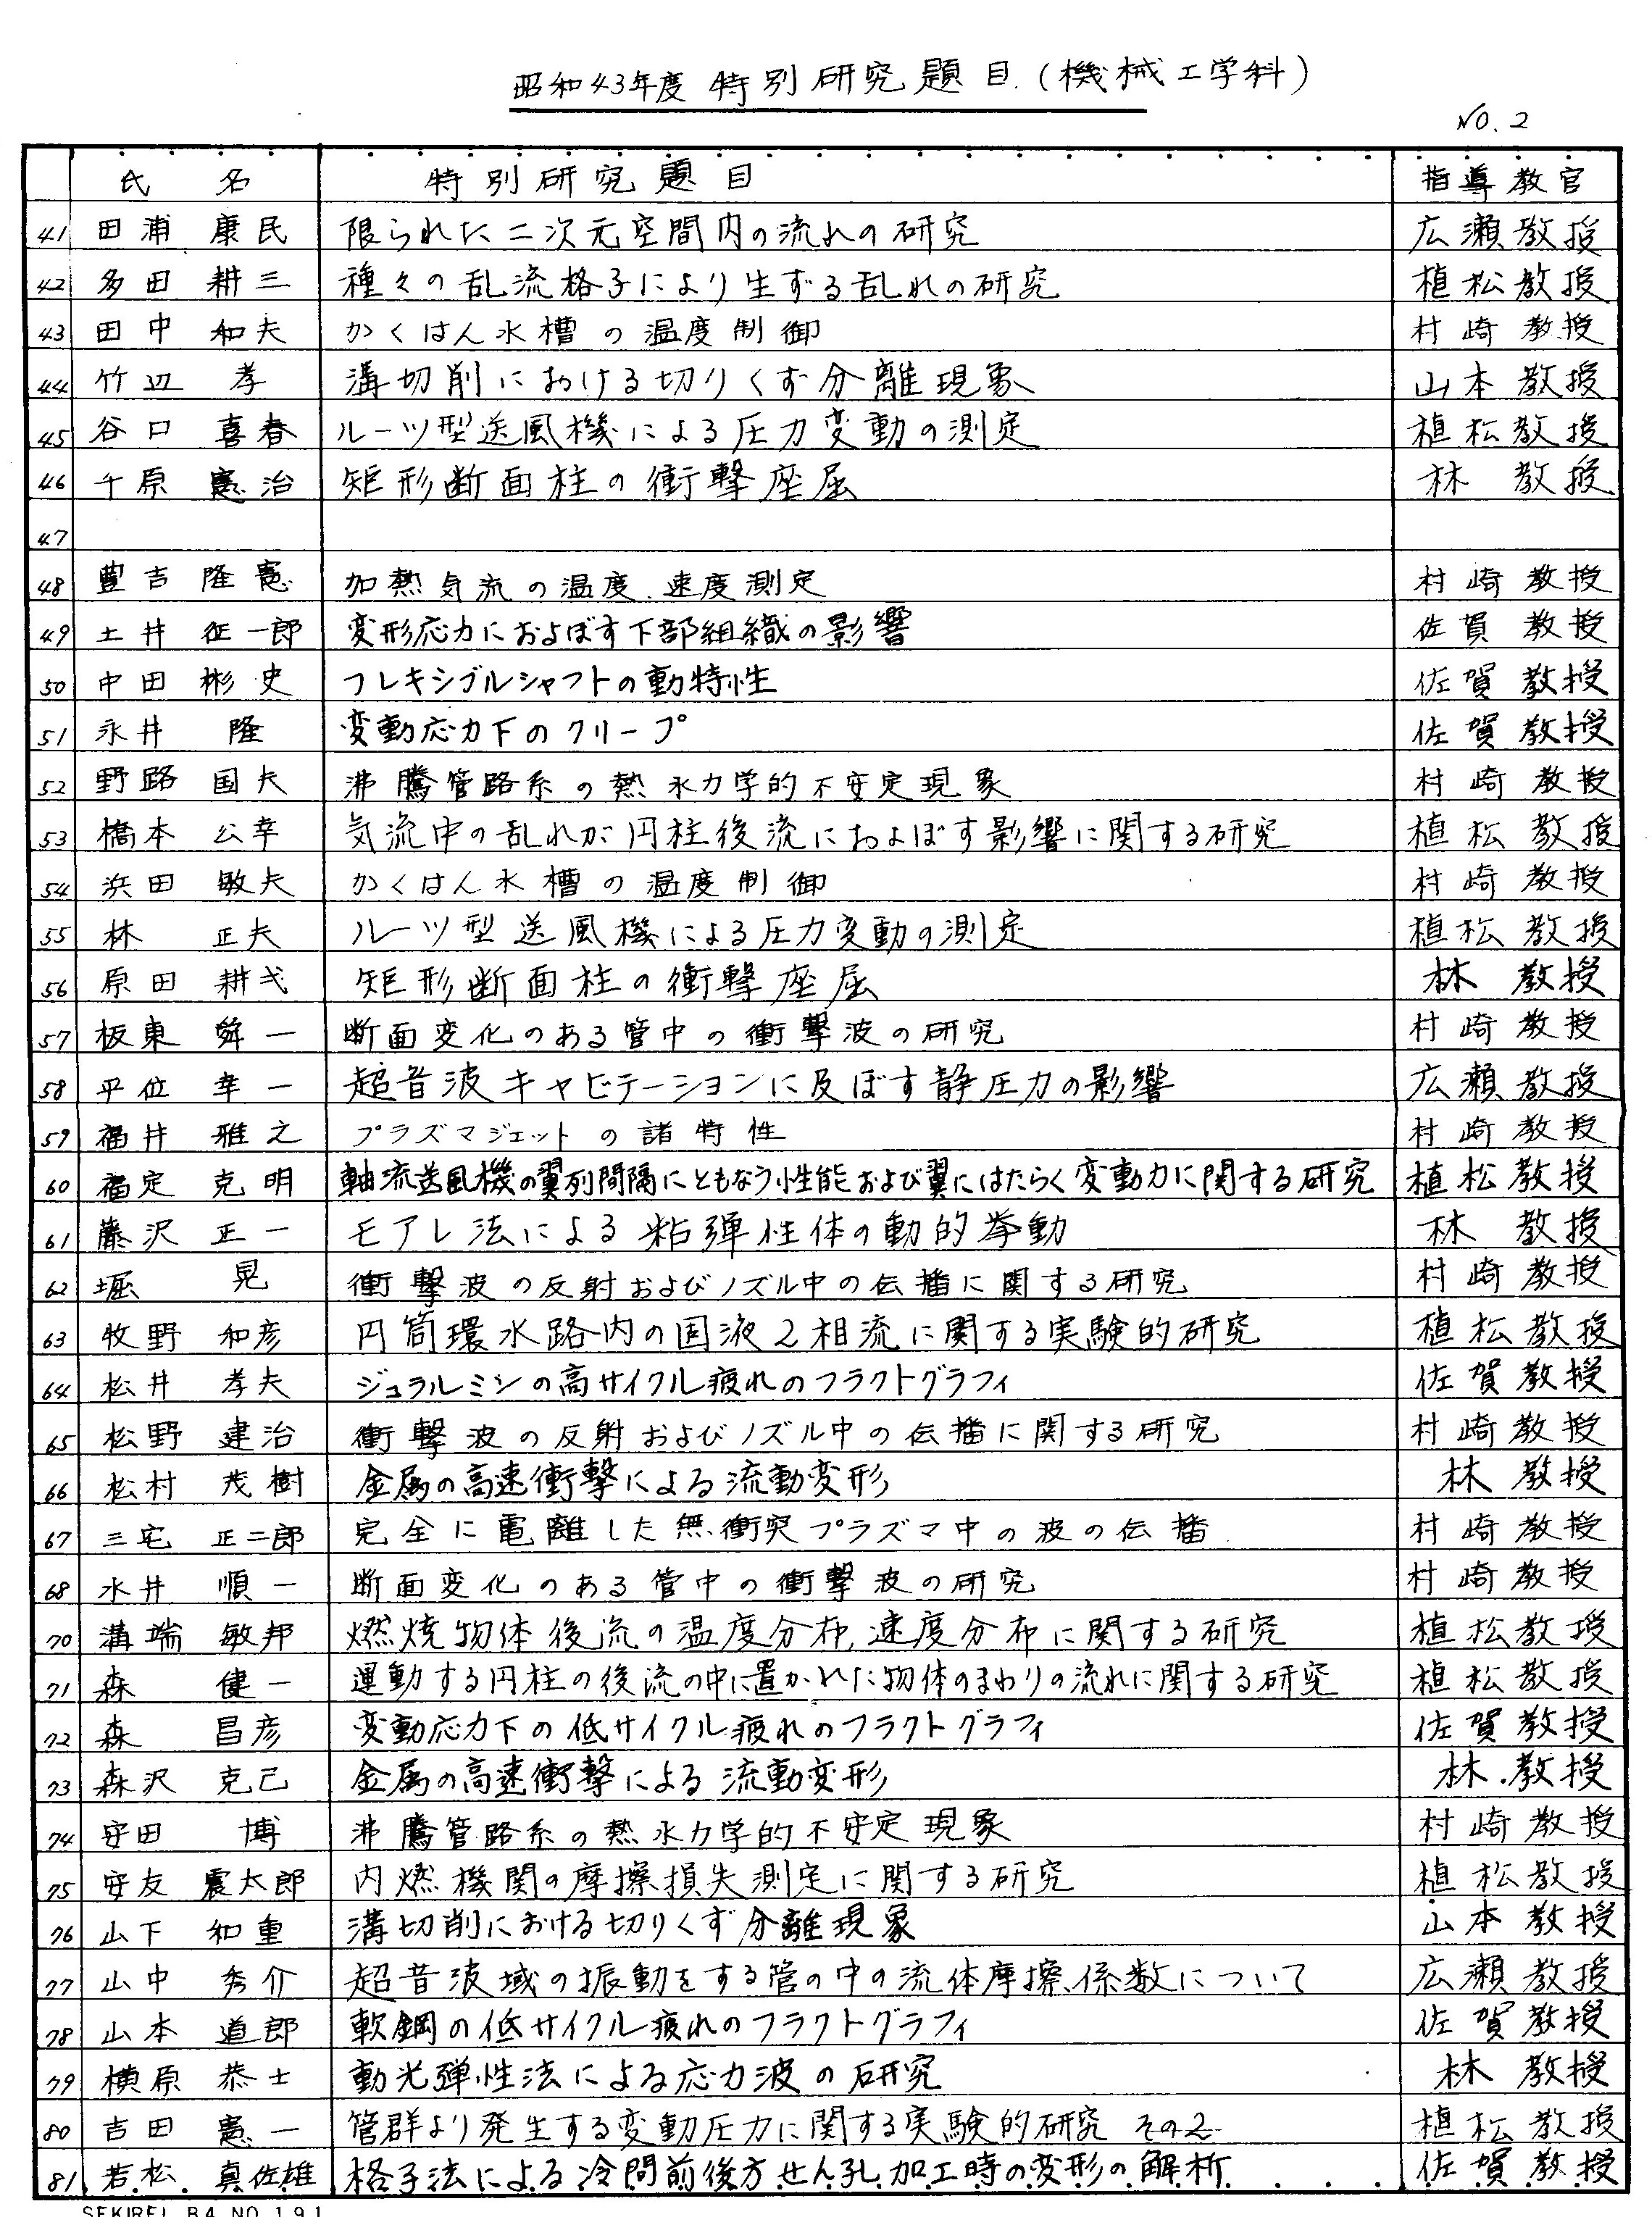 昭和43年度 特別研究題目.(機械工学科)
NO. 2
氏 名 特別研究題目 指導教官
41 田浦 康民 限られた二次元空間内の流れの研究 広瀬教授
42 多田 耕三 種々の乱流格子により生ずる乱れの研究 植松教授
43 田中 和夫 かくはん水槽の温度制御 村崎教授
44 竹辺 孝 溝切削における切りくず分離現象 山本教授
45 谷口 喜春 ルーツ型送風機による圧力変動の測定 植松教授
46 千原 憲治 矩形断面柱の衝撃座屈 林 教授
47
48 豊吉 隆憲 加熱気流の温度.速度測定 村崎教授
49 土井 征一郎 変形応力におよぼす下部組織の影響 佐賀教授
50 中田 彬史 フレキシブルシャフトの動特性 佐賀教授
51 永井 隆 変動応力下のクリープ 佐賀教授
52 野路 国夫 沸騰管路系の熱水力学的不安定現象 村崎教授
53 橋本 公幸 気流中の乱れが円柱後流におよぼす影響に関する研究 植松教授
54 浜田 敏夫 かくはん水槽の温度制御 村崎教授
55 林 正夫 ルーツ型送風機による圧力変動の測定 植松教授
56 原田 耕弐 矩形断面柱の衝撃座屈 林 教授
57 板東 舜一 断面変化のある管中の衝撃波の研究 村崎教授
58 平位 幸一 超音波キャビテーションに及ぼす静圧力の影響 広瀬教授
59 福井 雅之 プラズマジェットの諸特性 村崎教授
60 福定 克明 軸流送風機の翼列間隔にともなう性能および翼にはたらく変動力に関する研究 植松教授
61 藤沢 正一 モアレ法による粘弾性体の動的挙動 林 教授
62 堀 晃 衝撃波の反射およびノズル中の伝播に関する研究 村崎教授
63 牧野 和彦 円筒環水路内の固液2相流に関する実験的研究 植松教授
64 松井 孝夫 ジュラルミンの高サイクル疲れのフラクトグラフィ 佐賀教授
65 松野 建治 衝撃波の反射およびノズル中の伝播に関する研究 村崎教授
66 松村 茂樹 金属の高速衝撃による流動変形 林 教授
67 三宅 正二郎 完全に電離した無衝突プラズマ中の波の伝播 村崎教授
68 水井 順一 断面変化のある管中の衝撃波の研究 村崎教授
70 溝端 敏邦 燃焼物体後流の温度分布,速度分布に関する研究 植松教授
71 森 健一 運動する円柱の後流の中に置かれた物体のまわりの流れに関する研究 植松教授
72 森 昌彦 変動応力下の低サイクル疲れのフラクトグラフィ 佐賀教授
73 森沢 克己 金属の高速衝撃による流動変形 林.教授
74 安田 博 沸騰管路系の熱水力学的不安定現象 村崎教授
75 安友 震太郎 内燃機関の摩擦損失測定に関する研究 植松教授
76 山下 和重 溝切削における切りくず分離現象 山本教授
77 山中 秀介 超音波域の振動をする管の中の流体摩擦係数について 広瀬教授
78 山本 道郎 軟鋼の低サイクル疲れのフラクトグラフィ 佐賀教授
79 横原 恭士 動光弾性法による応力波の研究 林 教授
80 吉田 憲一 管群より発生する変動圧力に関する実験的研究 その2 植松教授
81 若松 真佐雄 格子法による冷間前後方せん孔加工時の変形の解析 佐賀教授
SEKIREI B4 NO 191